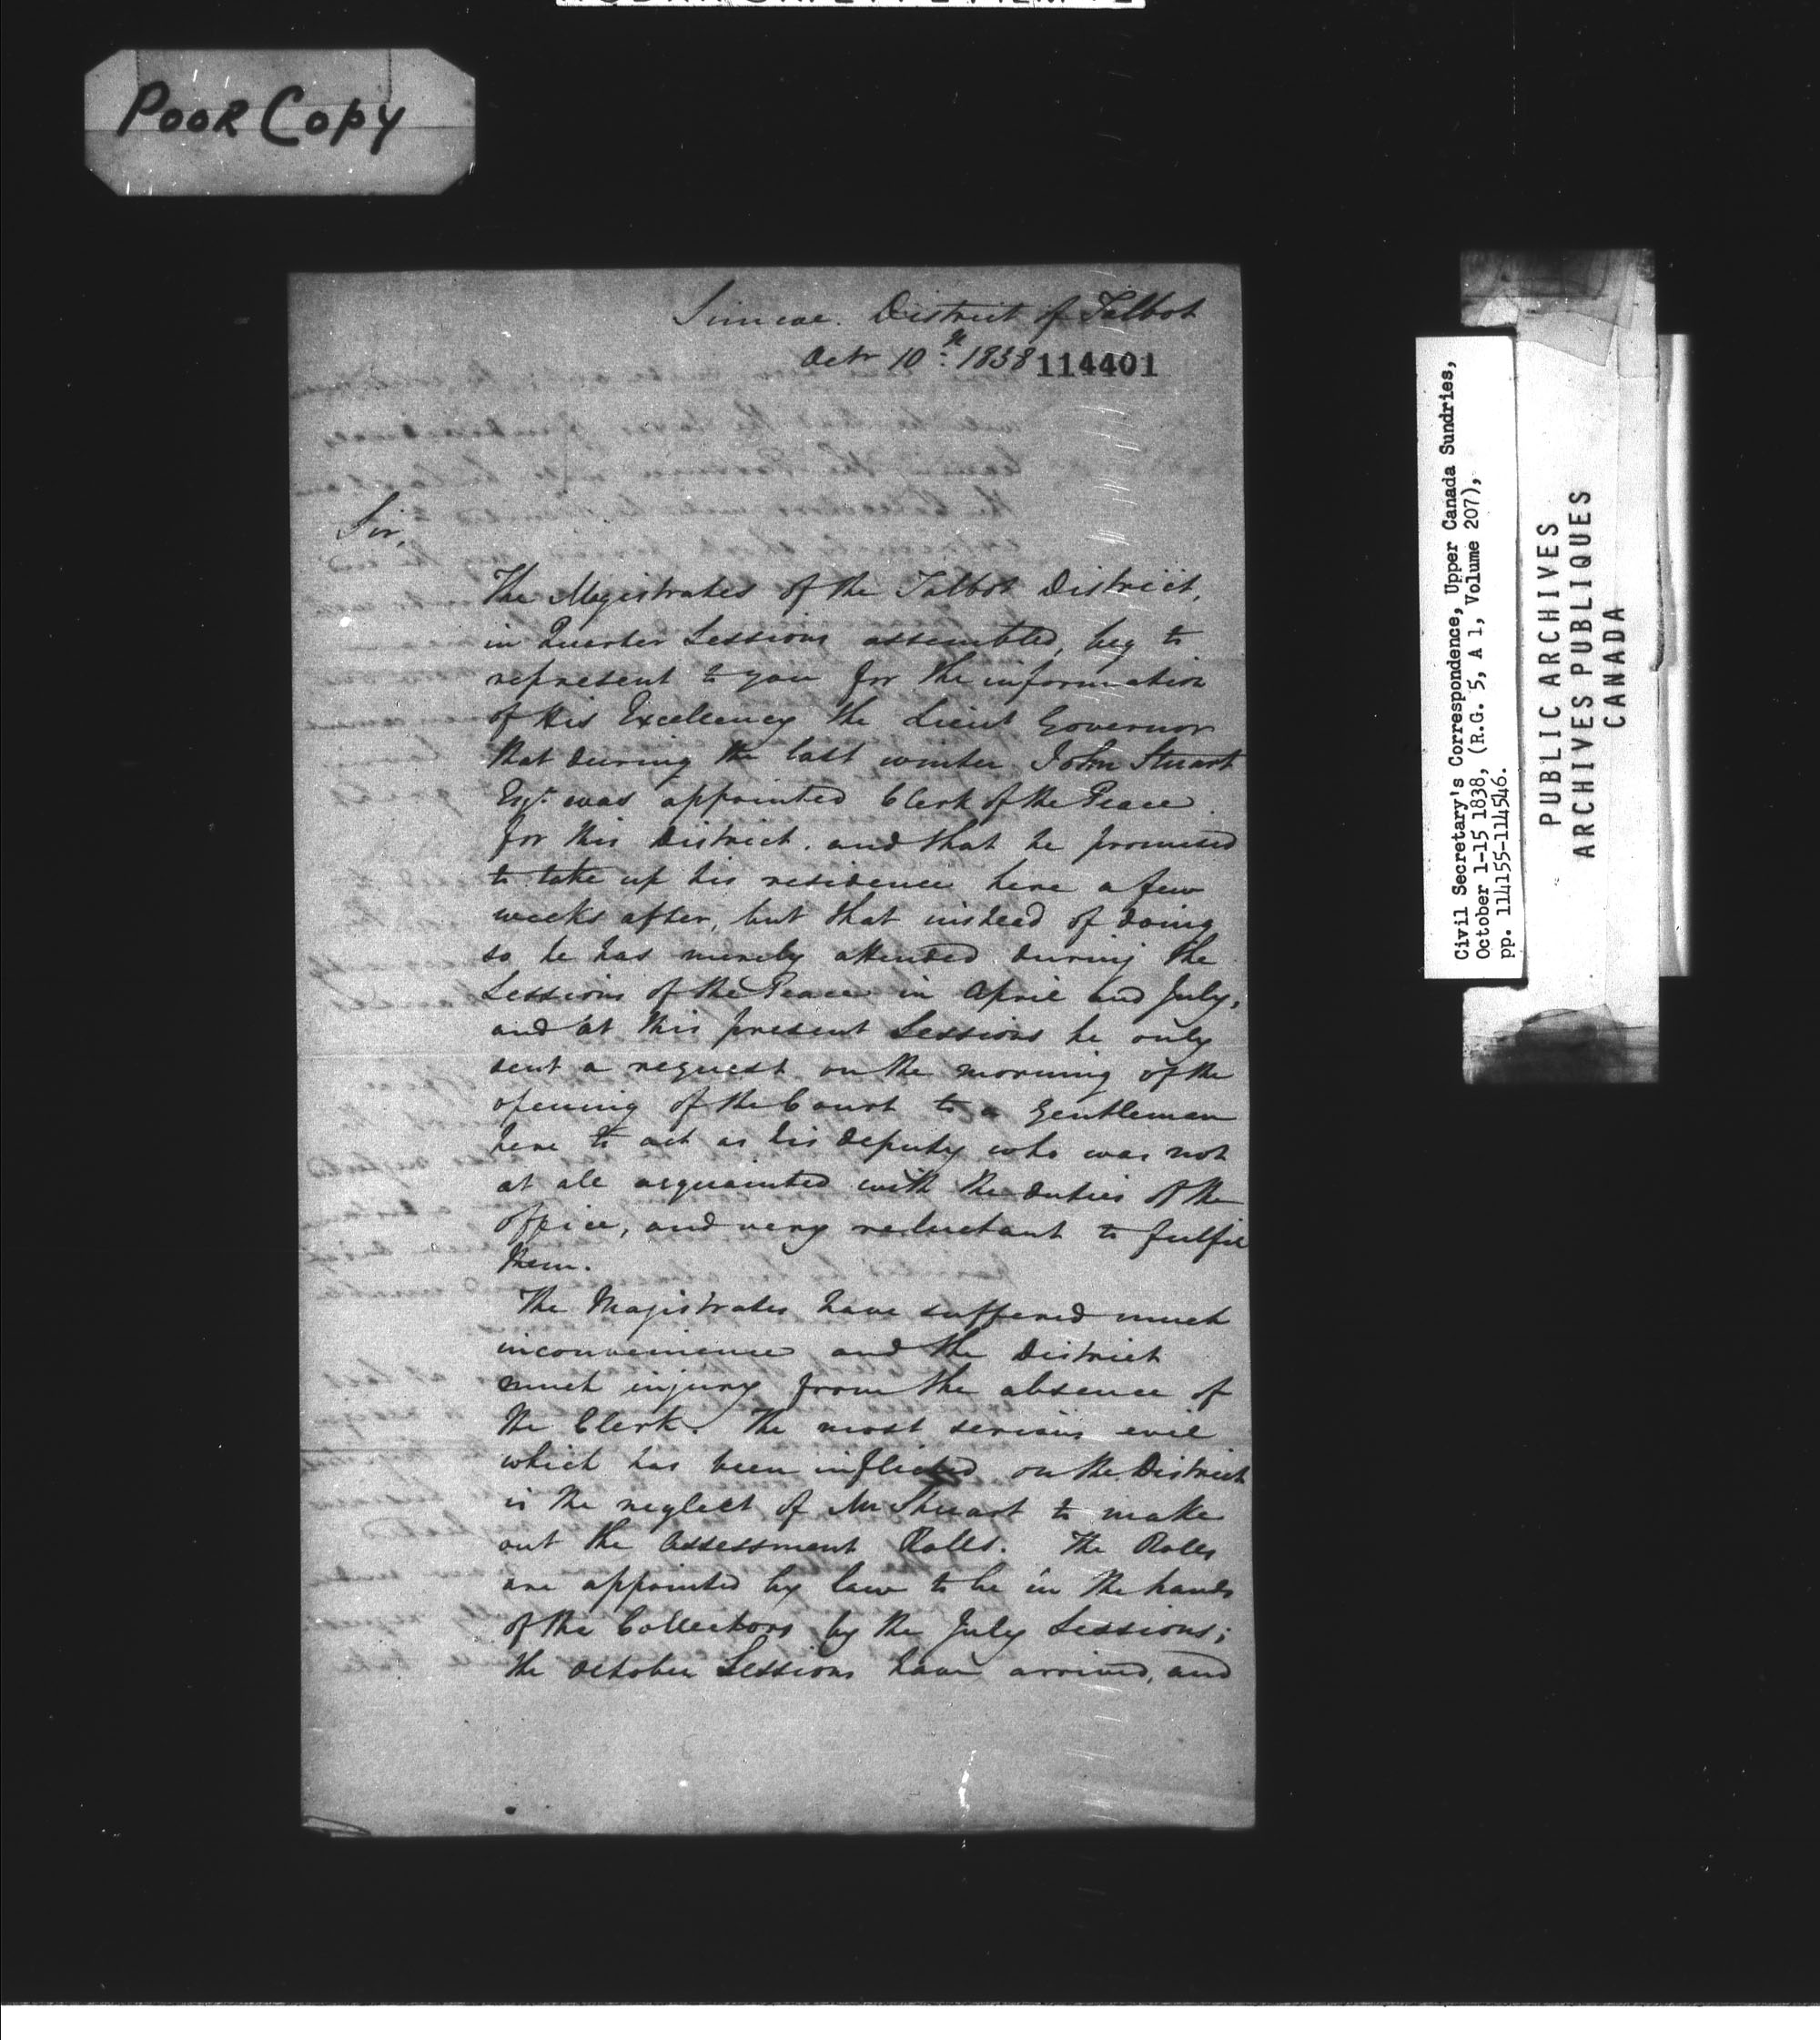 POOR COPY
Simcoe. District of Talbot
Octr 10th 1838 114401
Sir,
The Magistrates of the Talbot District,
in Quarter Sessions assembled, beg to
represent to you for the information
of His Excellency the Lieut Governor
that during the last winter John Stuart
Esqr. was appointed Clerk of the Peace
for this District. and that he promised
to take up his residence here a few
weeks after, but that instead of doing
so he has merely attended during the
Sessions of the Peace in April and July,
and at this present Sessions he only
sent a request on the morning of the
opening of the Court to a Gentleman
here to act as his deputy who was not
at all acquainted with the duties of the
office, and very reluctant to fulfil
them.
The Magistrates have suffered much
inconvenience and the District
much injury from the absence of
the Clerk. The most serious evil
which has been inflicted on the District
is the neglect of Mr Stuart to make
out the Assessment Rolls. The Rolls
are appointed by law to be in the hands
of the Collectors by the July Sessions;
the October Sessions have arrived, and
Civil Secretary's Correspondence, Upper Canada Sundries,
October 1-15 1838, (R.G. 5, A 1, Volume 207),
pp. 114155-114546.
PUBLIC ARCHIVES
ARCHIVES PUBLIQUES
CANADA